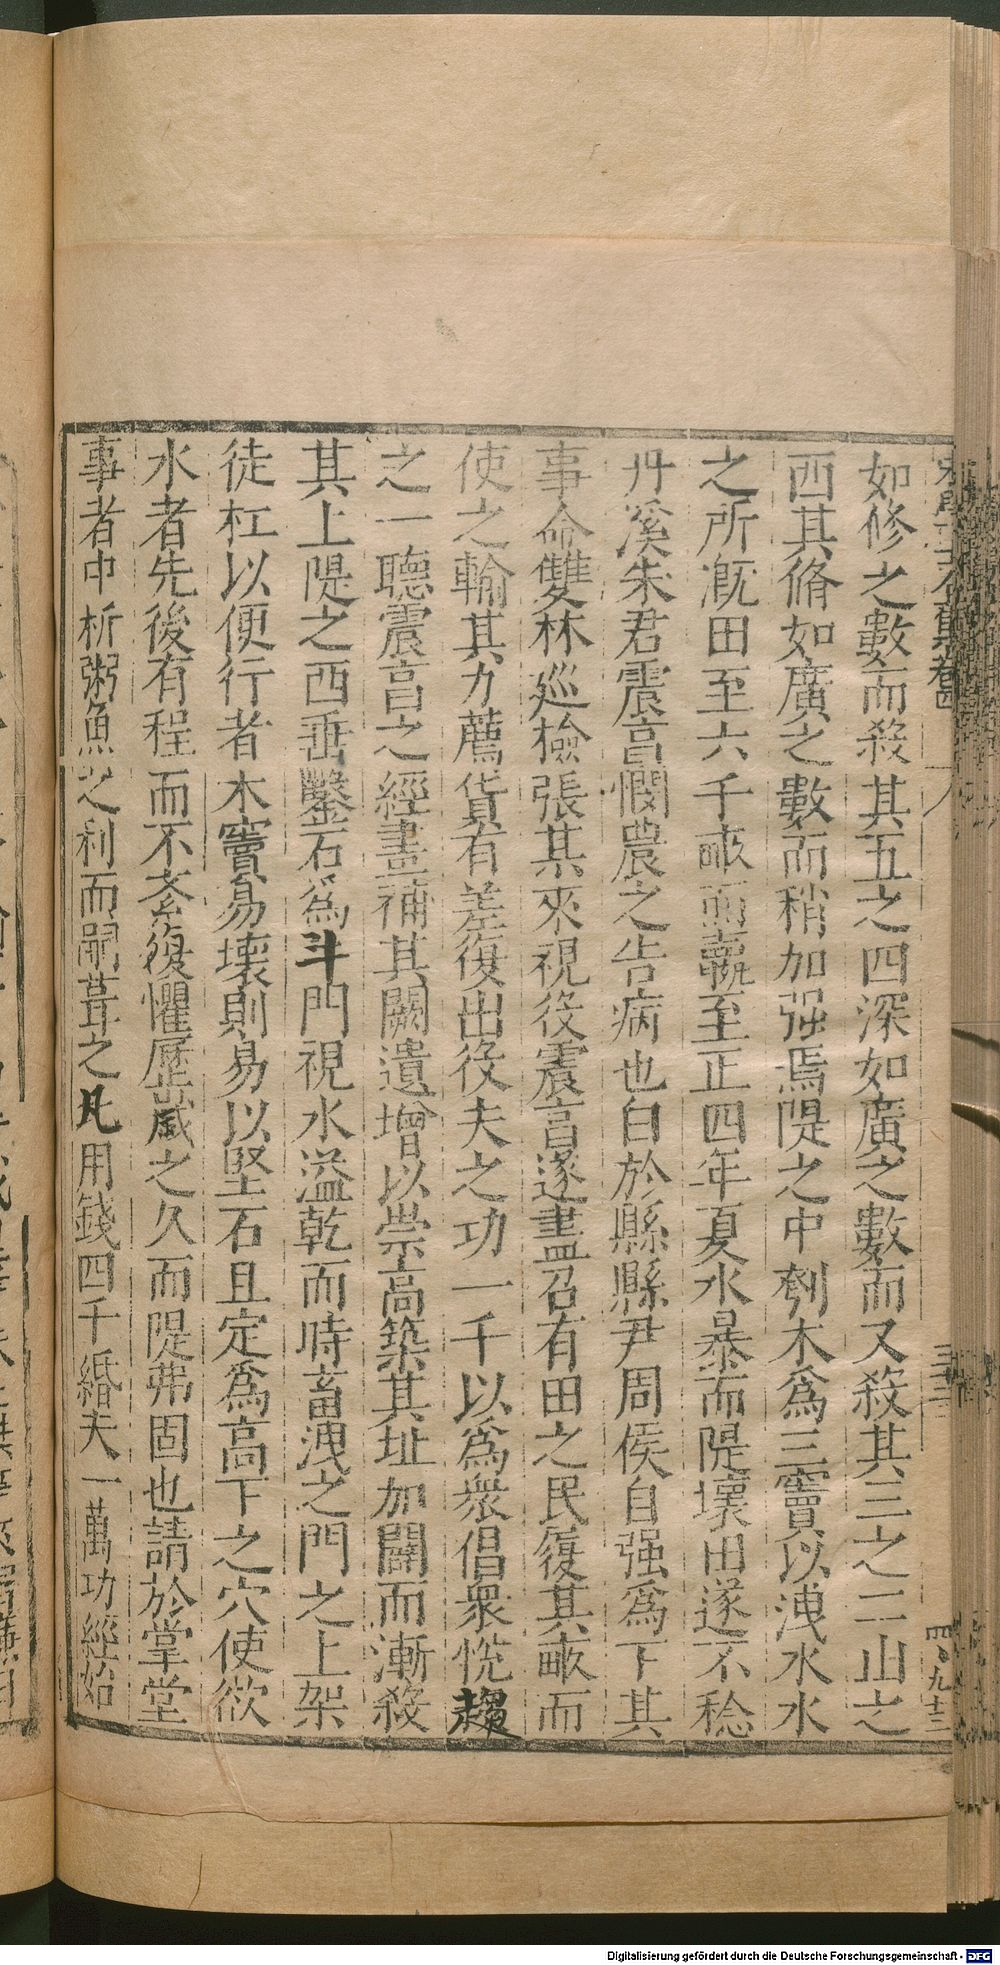 如修之數而殺其五之四深如廣之數而又殺其三之二山之
西其脩如廣之數而稍加强焉隄之中刳木爲三竇以洩水水
之所漑田至六千畝而羸至正四年夏水暴而隄壞田遂不稔
丹溪朱君震亨憫農之告病也白於縣縣尹周侯自强爲下其
事命雙林廵檢張某來視役震亨遂盡召有田之民履其畝而
使之輸其力薦貨有差復出役夫之功一千以爲衆倡衆悅趨
之一聽震亨之經畫補其闕遺增以崇高築其址加闊而漸殺
其上隄之西垂鑿石爲斗門視水溢乾而時畜洩之門之上架
徒杠以便行者木竇易壞則易以堅石且定爲高下之穴使欲
水者先後有程而不紊復懼歷歲之久而隄弗固也請於掌堂
事者中析粥魚之利而嗣葺之凡用錢四千緡夫一萬功經始
卷四
Digitalisierung gefördert durch die Deutsche Forschungsgemeinschaft - DFG